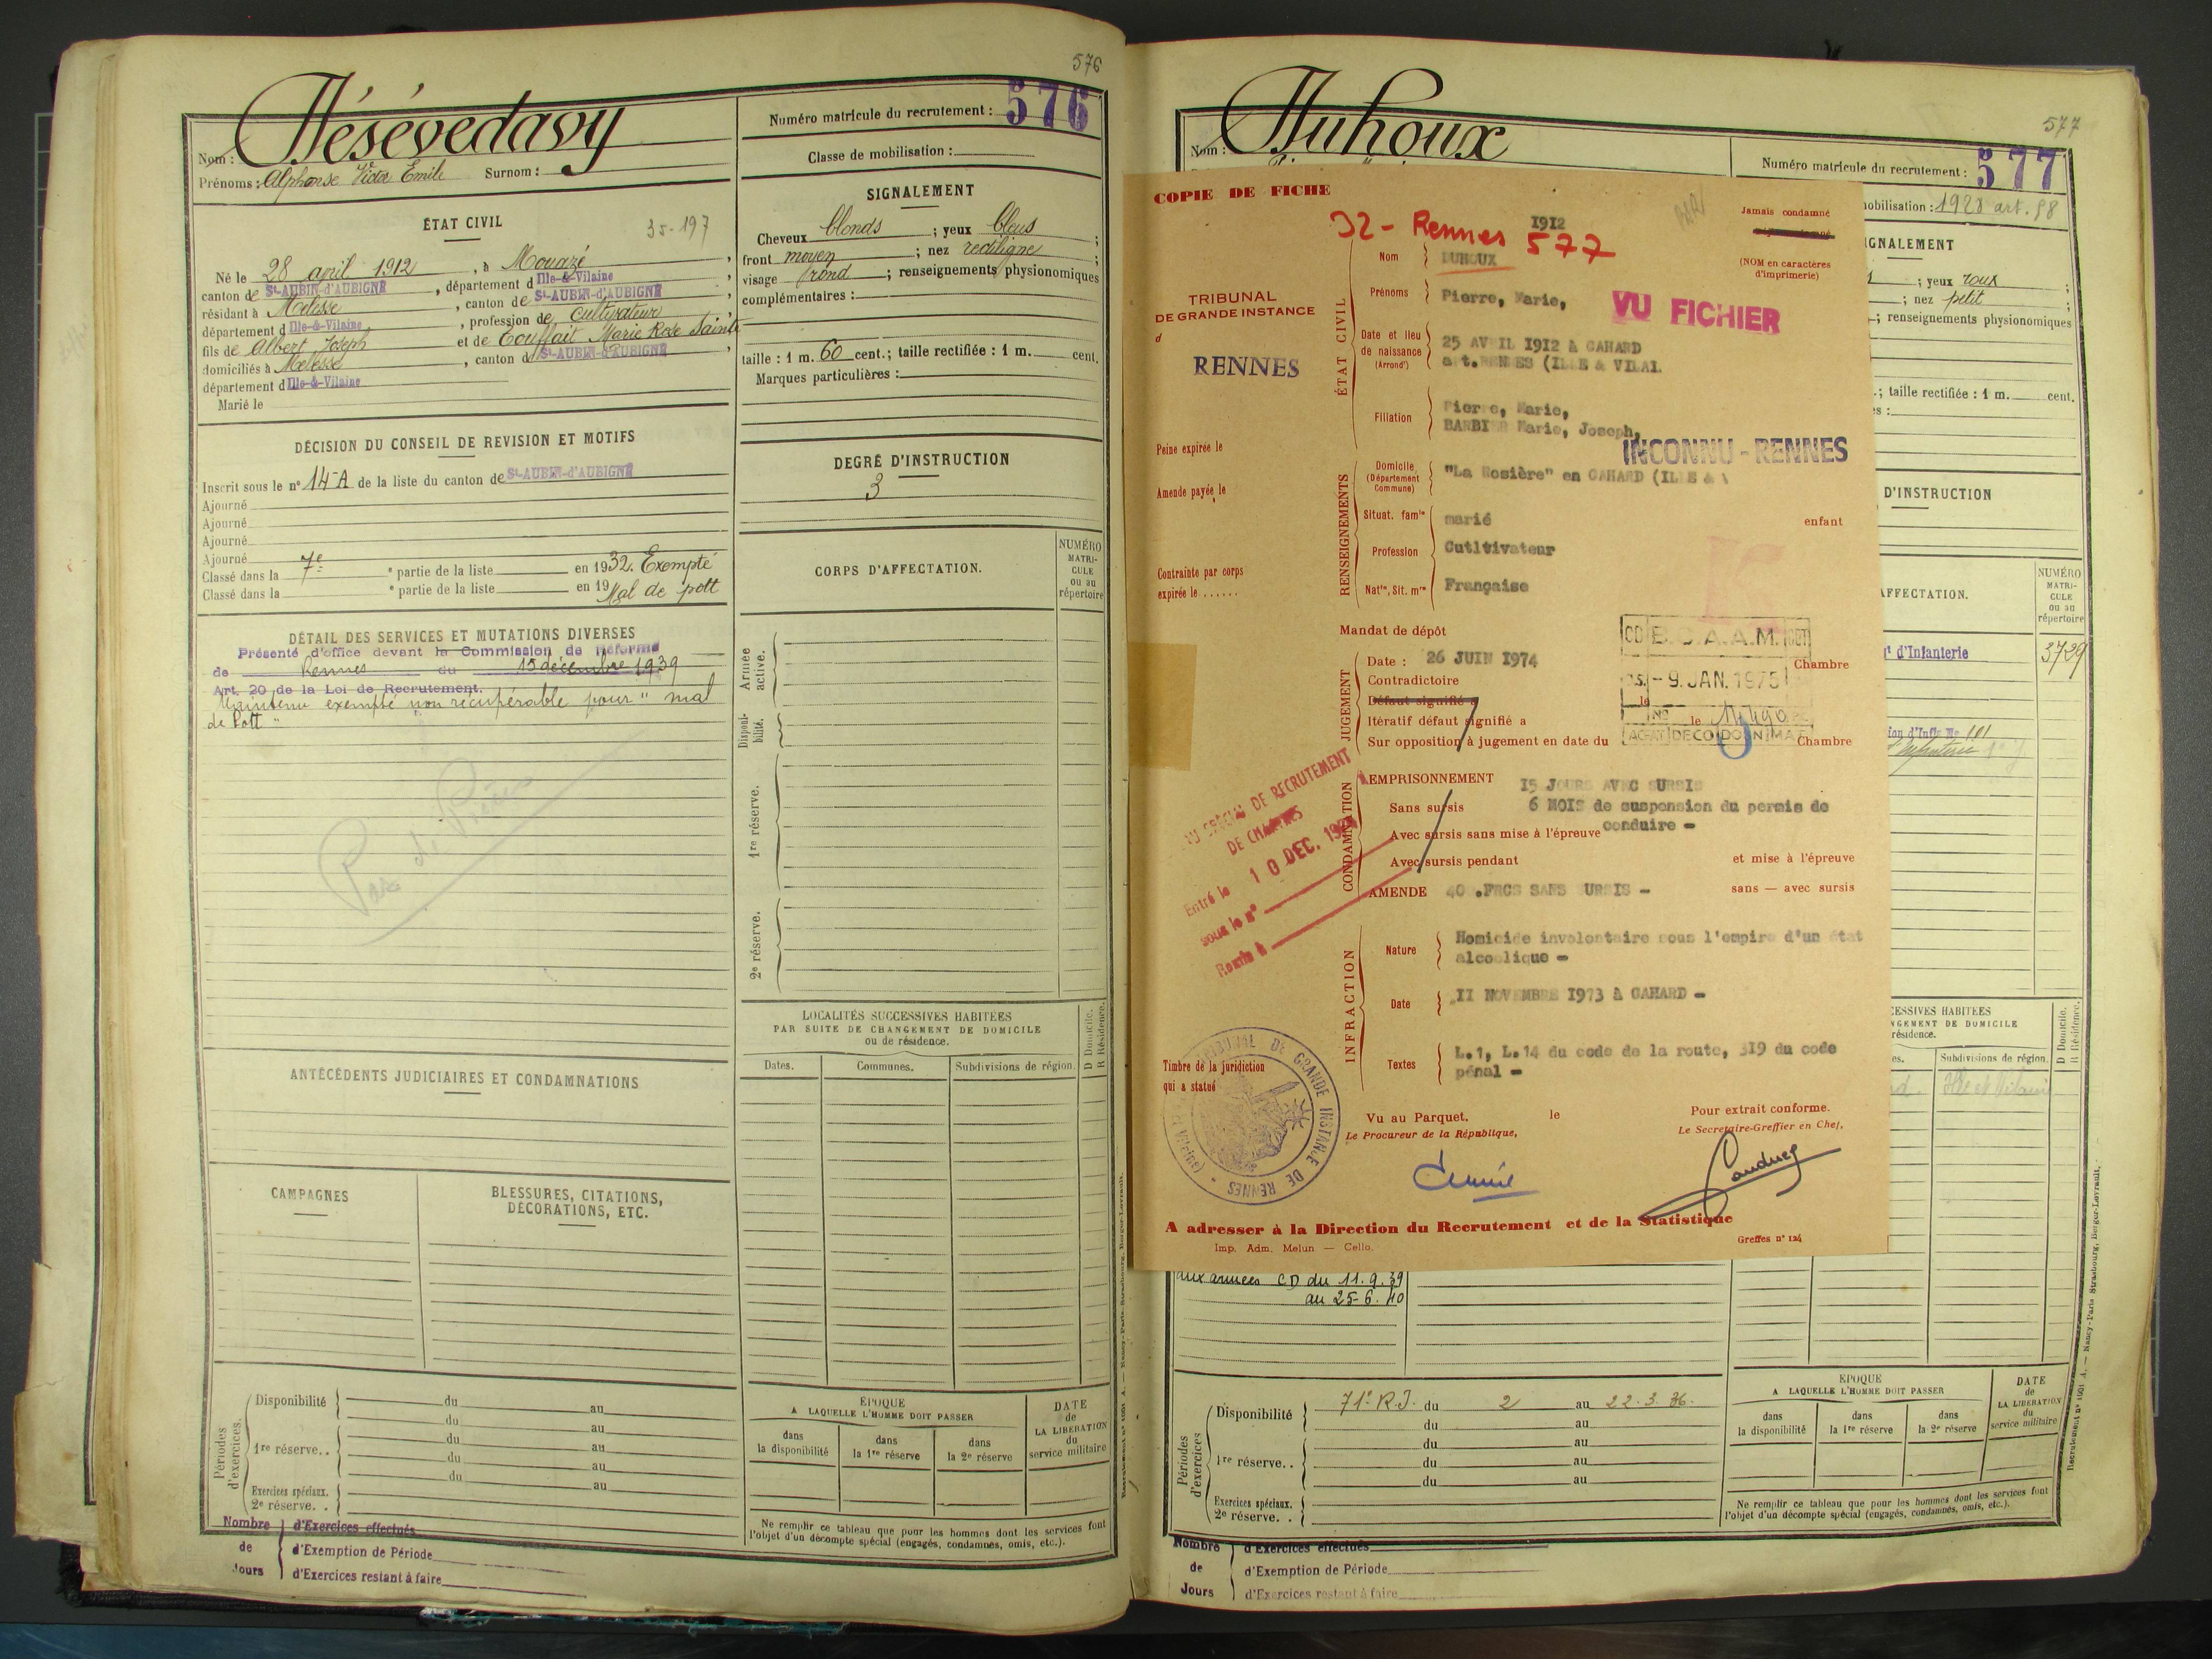 576
Nom : Hésévedavy
Prénoms : Alphonse Victor Emile Surnom :
Numéro matricule du recrutement : 576
Classe de mobilisation :
ÉTAT CIVIL
35-197
Né le 28 avril 1912, à Mouazé,
canton de St-AUBIN-d'AUBIGNÉ, département d Ille-&-Vilaine,
résidant à Melesse, canton de St-AUBIN-d'AUBIGNÉ,
département d Ille-&-Vilaine, profession de cultivateur
fils de Albert Joseph et de Couffait Marie Rose Sainte
domiciliés à Melesse, canton d St-AUBIN-d'AUBIGNÉ
département d Ille-&-Vilaine
Marié le
SIGNALEMENT
Cheveux blonds ; yeux bleus ;
front moyen ; nez rectiligne ;
visage rond ; renseignements physionomiques
complémentaires :
taille : 1 m. 60 cent.; taille rectifiée : 1 m. cent.
Marques particulières :
DÉCISION DU CONSEIL DE REVISION ET MOTIFS
Inscrit sous le n° 14-A de la liste du canton de St-AUBIN-d'AUBIGNÉ
Ajourné
Ajourné
Ajourné
Ajourné
Classé dans la 7e e partie de la liste en 1932. Exempté
Classé dans la e partie de la liste en 19 Mal de pott
DEGRÉ D'INSTRUCTION
3
CORPS D'AFFECTATION.
NUMÉRO
MATRI-
CULE
ou au
répertoire
DÉTAIL DES SERVICES ET MUTATIONS DIVERSES
Présenté d'office devant la Commission de Réforme
de Rennes du 15 décembre 1939
Art. 20 de la Loi de Recrutement.
Maintenu exempté non récupérable pour " mal
de Pott "
Pas de Pièces
Armée
active.
Disponi-
bilité.
1re réserve.
2e réserve.
ANTÉCÉDENTS JUDICIAIRES ET CONDAMNATIONS
LOCALITÉS SUCCESSIVES HABITÉES
PAR SUITE DE CHANGEMENT DE DOMICILE
ou de résidence.
D Domicile.
R Résidence.
Dates.
Communes.
Subdivisions de région.
CAMPAGNES
BLESSURES, CITATIONS,
DÉCORATIONS, ETC.
Périodes
d'exercices.
Disponibilité
du au
du au
1re réserve. .
du au
du au
du au
Exercices spéciaux.
2e réserve. .
ÉPOQUE
A LAQUELLE L'HOMME DOIT PASSER
dans
la disponibilité
dans
la 1re réserve
dans
la 2e réserve
DATE
de
LA LIBÉRATION
du
service militaire
Ne remplir ce tableau que pour les hommes dont les services font
l'objet d'un décompte spécial (engagés, condamnés, omis, etc.).
Nombre
de
Jours
d'Exercices effectués
d'Exemption de Période
d'Exercices restant à faire
577
Nom : Duhoux
Numéro matricule du recrutement : 577
mobilisation : 1928 art. 58
COPIE DE FICHE
32 - Rennes 1912
577
Jamais condamné
(NOM en caractères
d'imprimerie)
TRIBUNAL
DE GRANDE INSTANCE
d
RENNES
ÉTAT CIVIL
Nom DUHOUX
Prénoms Pierre, Marie,
VU FICHIER
Date et lieu
de naissance
(Arrond')
25 AVRIL 1912 à GAHARD
art. RENNES (ILLE & VILAI.
Filiation
Pierre, Marie,
BARBIER Marie, Joseph,
INCONNU - RENNES
Peine expirée le
Amende payée le
Contrainte par corps
expirée le . . . . . .
RENSEIGNEMENTS
Domicile
(Département
Commune)
"La Rosière" en GAHARD (ILLE & V
Situat. famle marié enfant
Profession Cutltivateur
Natté, Sit. mre Française
Mandat de dépôt
B.C.A.A.M.
- 9. JAN. 1975
JUGEMENT
Date : 26 JUIN 1974 Chambre
Contradictoire
Défaut signifié a
Itératif défaut signifié a
Sur opposition à jugement en date du Chambre
BUREAU SPÉCIAL DE RECRUTEMENT
DE CHARTRES
Entré le 10 DEC. 19
sous le n°
CONDAMNATION
EMPRISONNEMENT 15 JOURS AVEC SURSIS
Sans sursis 6 MOIS de suspension du permis de
conduire -
Avec sursis sans mise à l'épreuve
Avec sursis pendant et mise à l'épreuve
AMENDE 40 .FRCS SANS SURSIS - sans — avec sursis
INFRACTION
Nature
Homicide involontaire sous l'empire d'un état
alcoolique -
Date
II NOVEMBRE 1973 à GAHARD -
Textes
L.1, L.14 du code de la route, 319 du code
pénal -
Timbre de la juridiction
qui a statué
TRIBUNAL DE GRANDE INSTANCE DE RENNES
Vu au Parquet, le
Le Procureur de la République,
Pour extrait conforme.
Le Secrétaire-Greffier en Chef,
A adresser à la Direction du Recrutement et de la Statistique
Imp. Adm. Melun — Cello.
Greffes n° 124
; yeux roux ;
; nez petit ;
; renseignements physionomiques
; taille rectifiée : 1 m. cent.
D'INSTRUCTION
NUMÉRO
MATRI-
CULE
ou au
répertoire
d'Infanterie
3729
Subdivisions de région.
D Domicile.
R Résidence.
Ille et Vilaine
aux armées CD du 11.9.39
au 25-6.40
Périodes
d'exercices
Disponibilité
71e R.I. du 2 au 22.3.36.
du au
1re réserve. .
du au
du au
du au
Exercices spéciaux.
2e réserve. .
ÉPOQUE
A LAQUELLE L'HOMME DOIT PASSER
dans
la disponibilité
dans
la 1re réserve
dans
la 2e réserve
DATE
de
LA LIBÉRATION
du
service militaire
Ne remplir ce tableau que pour les hommes dont les services font
l'objet d'un décompte spécial (engagés, condamnés, omis, etc.).
Nombre
de
Jours
d'Exercices effectués
d'Exemption de Période
d'Exercices restant à faire